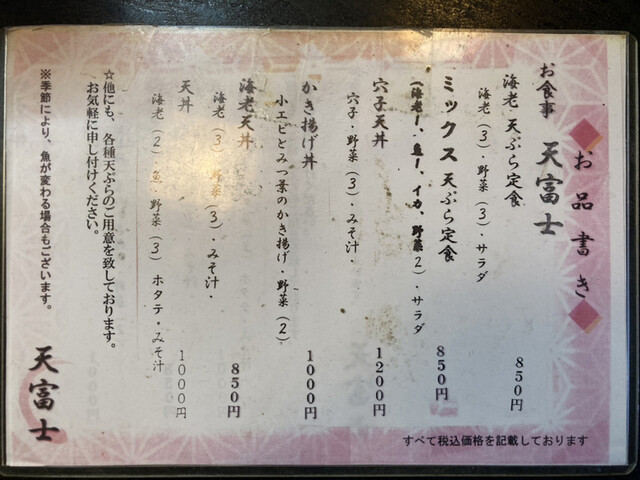 お品書き
お食事 天富士
海老天ぷら定食 850円
海老(3)・野菜(3)・サラダ
ミックス天ぷら定食 850円
(海老1、魚1、イカ、野菜2)・サラダ
穴子天丼 1200円
穴子・野菜(3)・みそ汁・
かき揚げ丼 1000円
小エビとみつ葉のかき揚げ・野菜(2)
海老天丼 850円
海老(3)・野菜(3)・みそ汁・
天丼 1000円
海老(2)魚・野菜(3)ホタテ・みそ汁
☆他にも、各種天ぷらのご用意を致しております。
お気軽に申し付けください。
※季節により、魚が変わる場合もございます。
天富士
すべて税込価格を記載しております